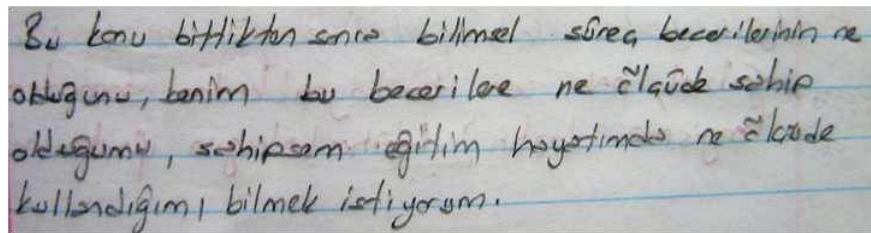 Bu konu bittikten sonra bilimsel süreç becerilerinin ne
olduğunu, benim bu becerilere ne ölçüde sahip
olduğumu, sahipsem eğitim hayatımda ne ölçüde
kullandığımı bilmek istiyorum.